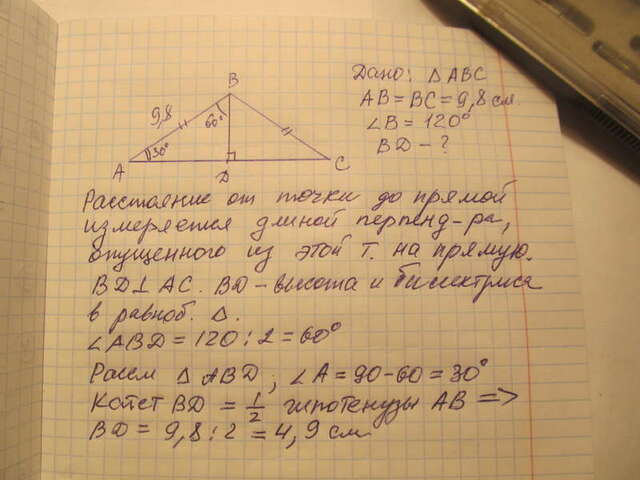 Дано: △ ABC
AB = BC = 9,8 см.
∠B = 120°
BD - ?
B
9,8
60°
30°
A
D
C
Расстояние от точки до прямой
измеряется длиной перпенд-ра,
опущенного из этой т. на прямую.
BD⊥AC. BD - высота и биссектриса
в равноб. △.
∠ABD = 120 : 2 = 60°
Рассм △ ABD ; ∠A = 90 - 60 = 30°
Катет BD = 1/2 гипотенузы AB =>
BD = 9,8 : 2 = 4,9 см